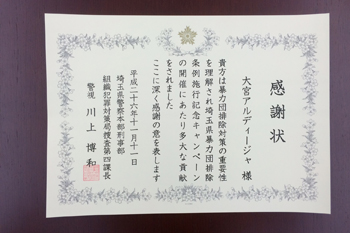 感謝状
大宮アルディージャ 様
貴方は暴力団排除対策の重要性
を理解され埼玉県暴力団排除
条例施行記念キャンペーン
の開催にあたり多大な貢献
をされました
ここに深く感謝の意を表します
平成二十六年十一月十一日
埼玉県警察本部刑事部
組織犯罪対策局捜査第四課長
警視 川上 博和